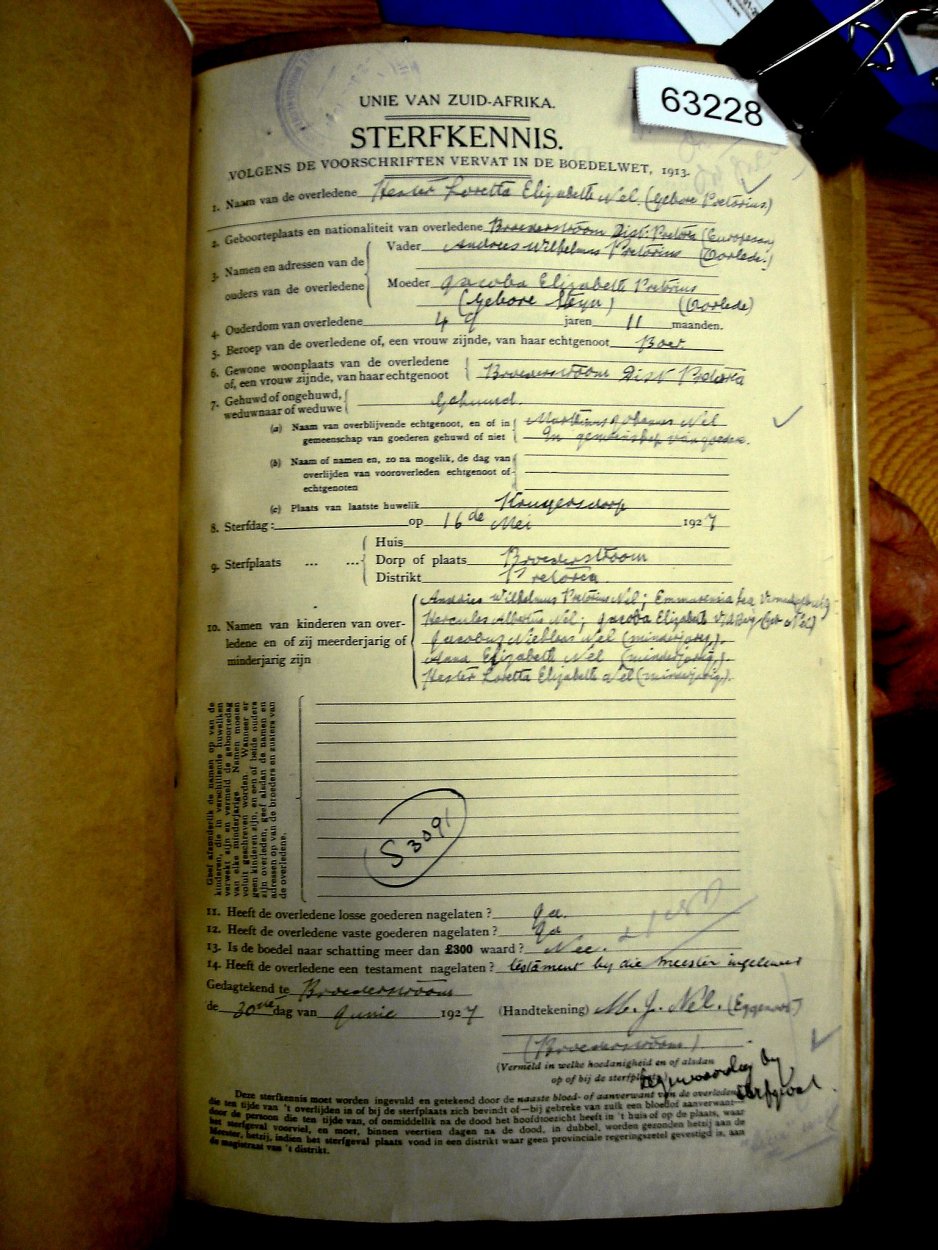 63228
UNIE VAN ZUID-AFRIKA.
STERFKENNIS.
VOLGENS DE VOORSCHRIFTEN VERVAT IN DE BOEDELWET, 1913.
1. Naam van de overledene Hester Loretta Elizabeth Nel, (Gebore Pretorius)
2. Geboorteplaats en nationaliteit van overledene Broederstroom Dist. Pretoria (European
3. Namen en adressen van de ouders van de overledene
Vader Andries Wilhelmus Pretorius (Oorlede.)
Moeder Jacoba Elizabeth Pretorius
(Gebore Steyn) (Oorlede)
4. Ouderdom van overledene 49 jaren 11 maanden.
5. Beroep van de overledene of, een vrouw zijnde, van haar echtgenoot Boer
6. Gewone woonplaats van de overledene of, een vrouw zijnde, van haar echtgenoot Broederstroom Dist. Pretoria
7. Gehuwd of ongehuwd, weduwnaar of weduwe Gehuurd.
(a) Naam van overblijvende echtgenoot, en of in gemeenschap van goederen gehuwd of niet
Marthinus Johannes Nel
In gemeenskap van goedere.
(b) Naam of namen en, zo na mogelik, de dag van overlijden van vooroverleden echtgenoot of echtgenoten
(c) Plaats van laatste huwelik Krugersdorp
8. Sterfdag: op 16de Mei 1927
9. Sterfplaats ... ...
Huis
Dorp of plaats Broederstroom
Distrikt Pretoria
10. Namen van kinderen van overledene en of zij meerderjarig of minderjarig zijn
Andries Wilhelmus Pretorius Nel; Emmarensia
Hercules Albertus Nel; Jacoba Elizabeth v.d. Berg (geb. Nel)
Jacobus Nel (minderjarig).
Anna Elizabeth Nel (minderjarig).
Hester Loretta Elizabeth Nel (minderjarig).
Geef afzonderlik de namen op van de
kinderen, die in verschillende huweliken
verwekt zijn en vermeld de geboortedag
van elke minderjarige. Namen moeten
voluit geschreven worden. Wanneer er
geen kinderen zijn, en een of beide ouders
zijn overleden, geef alsdan de namen en
adressen op van de broeders en zusters van
de overledene.
S 3091
11. Heeft de overledene losse goederen nagelaten? Ja.
12. Heeft de overledene vaste goederen nagelaten? Ja
13. Is de boedel naar schatting meer dan £300 waard? Nee.
14. Heeft de overledene een testament nagelaten? testament by die meester ingelewer
Gedagtekend te Broederstroom
de 30ste dag van Junie 1927 (Handtekening) M. J. Nel. (Eggenoot)
(Broederstroom)
(Vermeld in welke hoedanigheid en of alsdan
op of bij de sterfplaats)
teenwoordig by
sterfgeval.
Deze sterfkennis moet worden ingevuld en getekend door de naaste bloed- of aanverwant van de overledene
die ten tijde van 't overlijden in of bij de sterfplaats zich bevindt of—bij gebreke van zulk een bloed of aanverwant—
door de persoon die ten tijde van, of onmiddellik na de dood het hoofdtoezicht heeft in 't huis of op de plaats, waar
het sterfgeval voorviel, en moet, binnen veertien dagen na de dood, in dubbel, worden gezonden hetzij aan de
Meester, hetzij, indien het sterfgeval plaats vond in een distrikt waar geen provinciale regeringszetel gevestigd is, aan
de magistraat van 't distrikt.